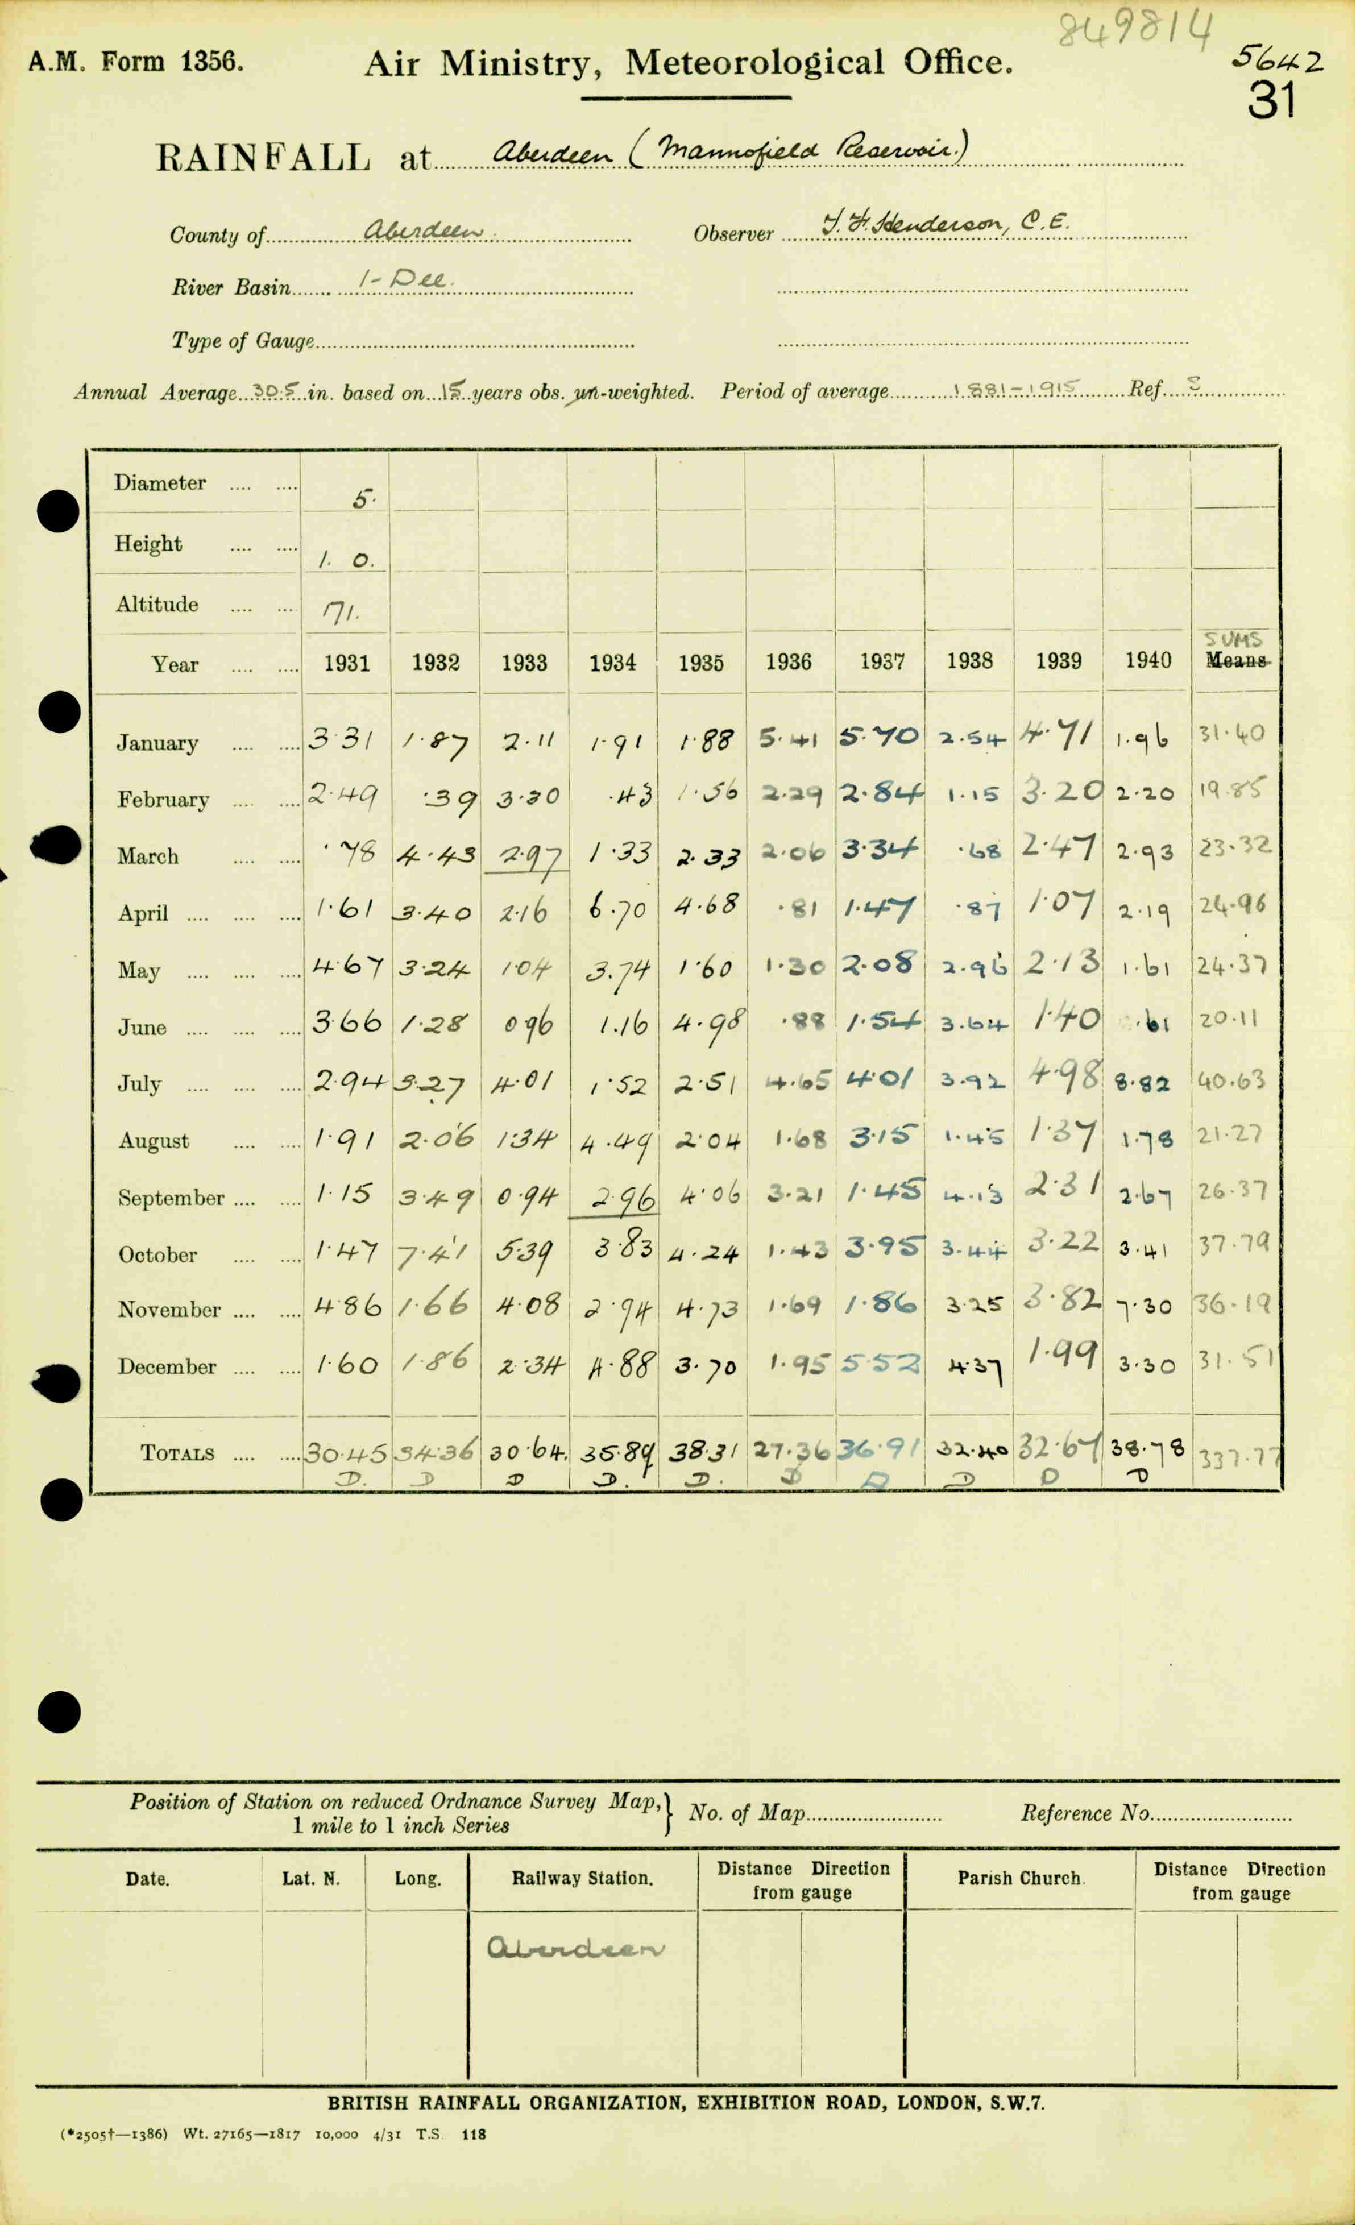 849814
A.M. Form 1356. Air Ministry, Meteorological Office. 5642
31
RAINFALL at Aberdeen (Mannofield Reservoir.)
County of Aberdeen. Observer T. F. Henderson, C.E.
River Basin 1-Dee.
Type of Gauge
Annual Average 30.5 in. based on 15 years obs. un-weighted. Period of average 1881-1915 Ref. Σ
Diameter 5.
Height 1. 0.
Altitude 71.
SUMS
Year 1931 1932 1933 1934 1935 1936 1937 1938 1939 1940 Means
January 3.31 1.87 2.11 1.91 1.88 5.41 5.70 2.54 4.71 1.96 31.40
February 2.49 .39 3.30 .43 1.56 2.29 2.84 1.15 3.20 2.20 19.85
March .78 4.43 2.97 1.33 2.33 2.06 3.34 .68 2.47 2.93 23.32
April 1.61 3.40 2.16 6.70 4.68 .81 1.47 .87 1.07 2.19 24.96
May 4.67 3.24 1.04 3.74 1.60 1.30 2.08 2.96 2.13 1.61 24.37
June 3.66 1.28 0.96 1.16 4.98 .88 1.54 3.64 1.40 .61 20.11
July 2.94 3.27 4.01 1.52 2.51 4.65 4.01 3.92 4.98 8.82 40.63
August 1.91 2.06 1.34 4.49 2.04 1.68 3.15 1.45 1.37 1.78 21.27
September 1.15 3.49 0.94 2.96 4.06 3.21 1.45 4.13 2.31 2.67 26.37
October 1.47 7.41 5.39 3.83 4.24 1.43 3.95 3.44 3.22 3.41 37.79
November 4.86 1.66 4.08 2.94 4.73 1.69 1.86 3.25 3.82 7.30 36.19
December 1.60 1.86 2.34 4.88 3.70 1.95 5.52 4.37 1.99 3.30 31.51
TOTALS 30.45 34.36 30.64. 35.89 38.31 27.36 36.91 32.40 32.67 38.78 337.77
D. D D D. D. D D D D D
Position of Station on reduced Ordnance Survey Map, } No. of Map Reference No.
1 mile to 1 inch Series
Date. Lat. N. Long. Railway Station. Distance Direction from gauge Parish Church. Distance Direction from gauge
Aberdeen
BRITISH RAINFALL ORGANIZATION, EXHIBITION ROAD, LONDON, S.W.7.
(*2505†—1386) Wt. 27165—1817 10,000 4/31 T.S. 118